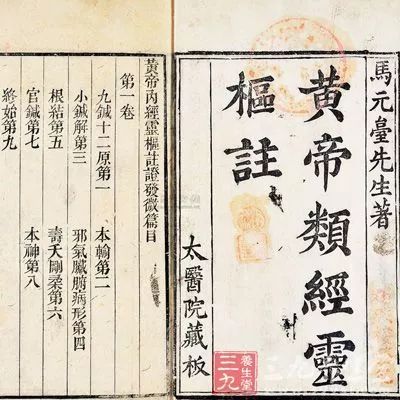 馬元臺先生著
黃帝類經靈
樞註
太醫院藏板
黃帝內經靈樞註證發微篇目
第一卷
九鍼十二原第一 本輸第二
小鍼解第三 邪氣臟腑病形第四
根結第五 壽夭剛柔第六
官鍼第七 本神第八
終始第九
三九
養生堂